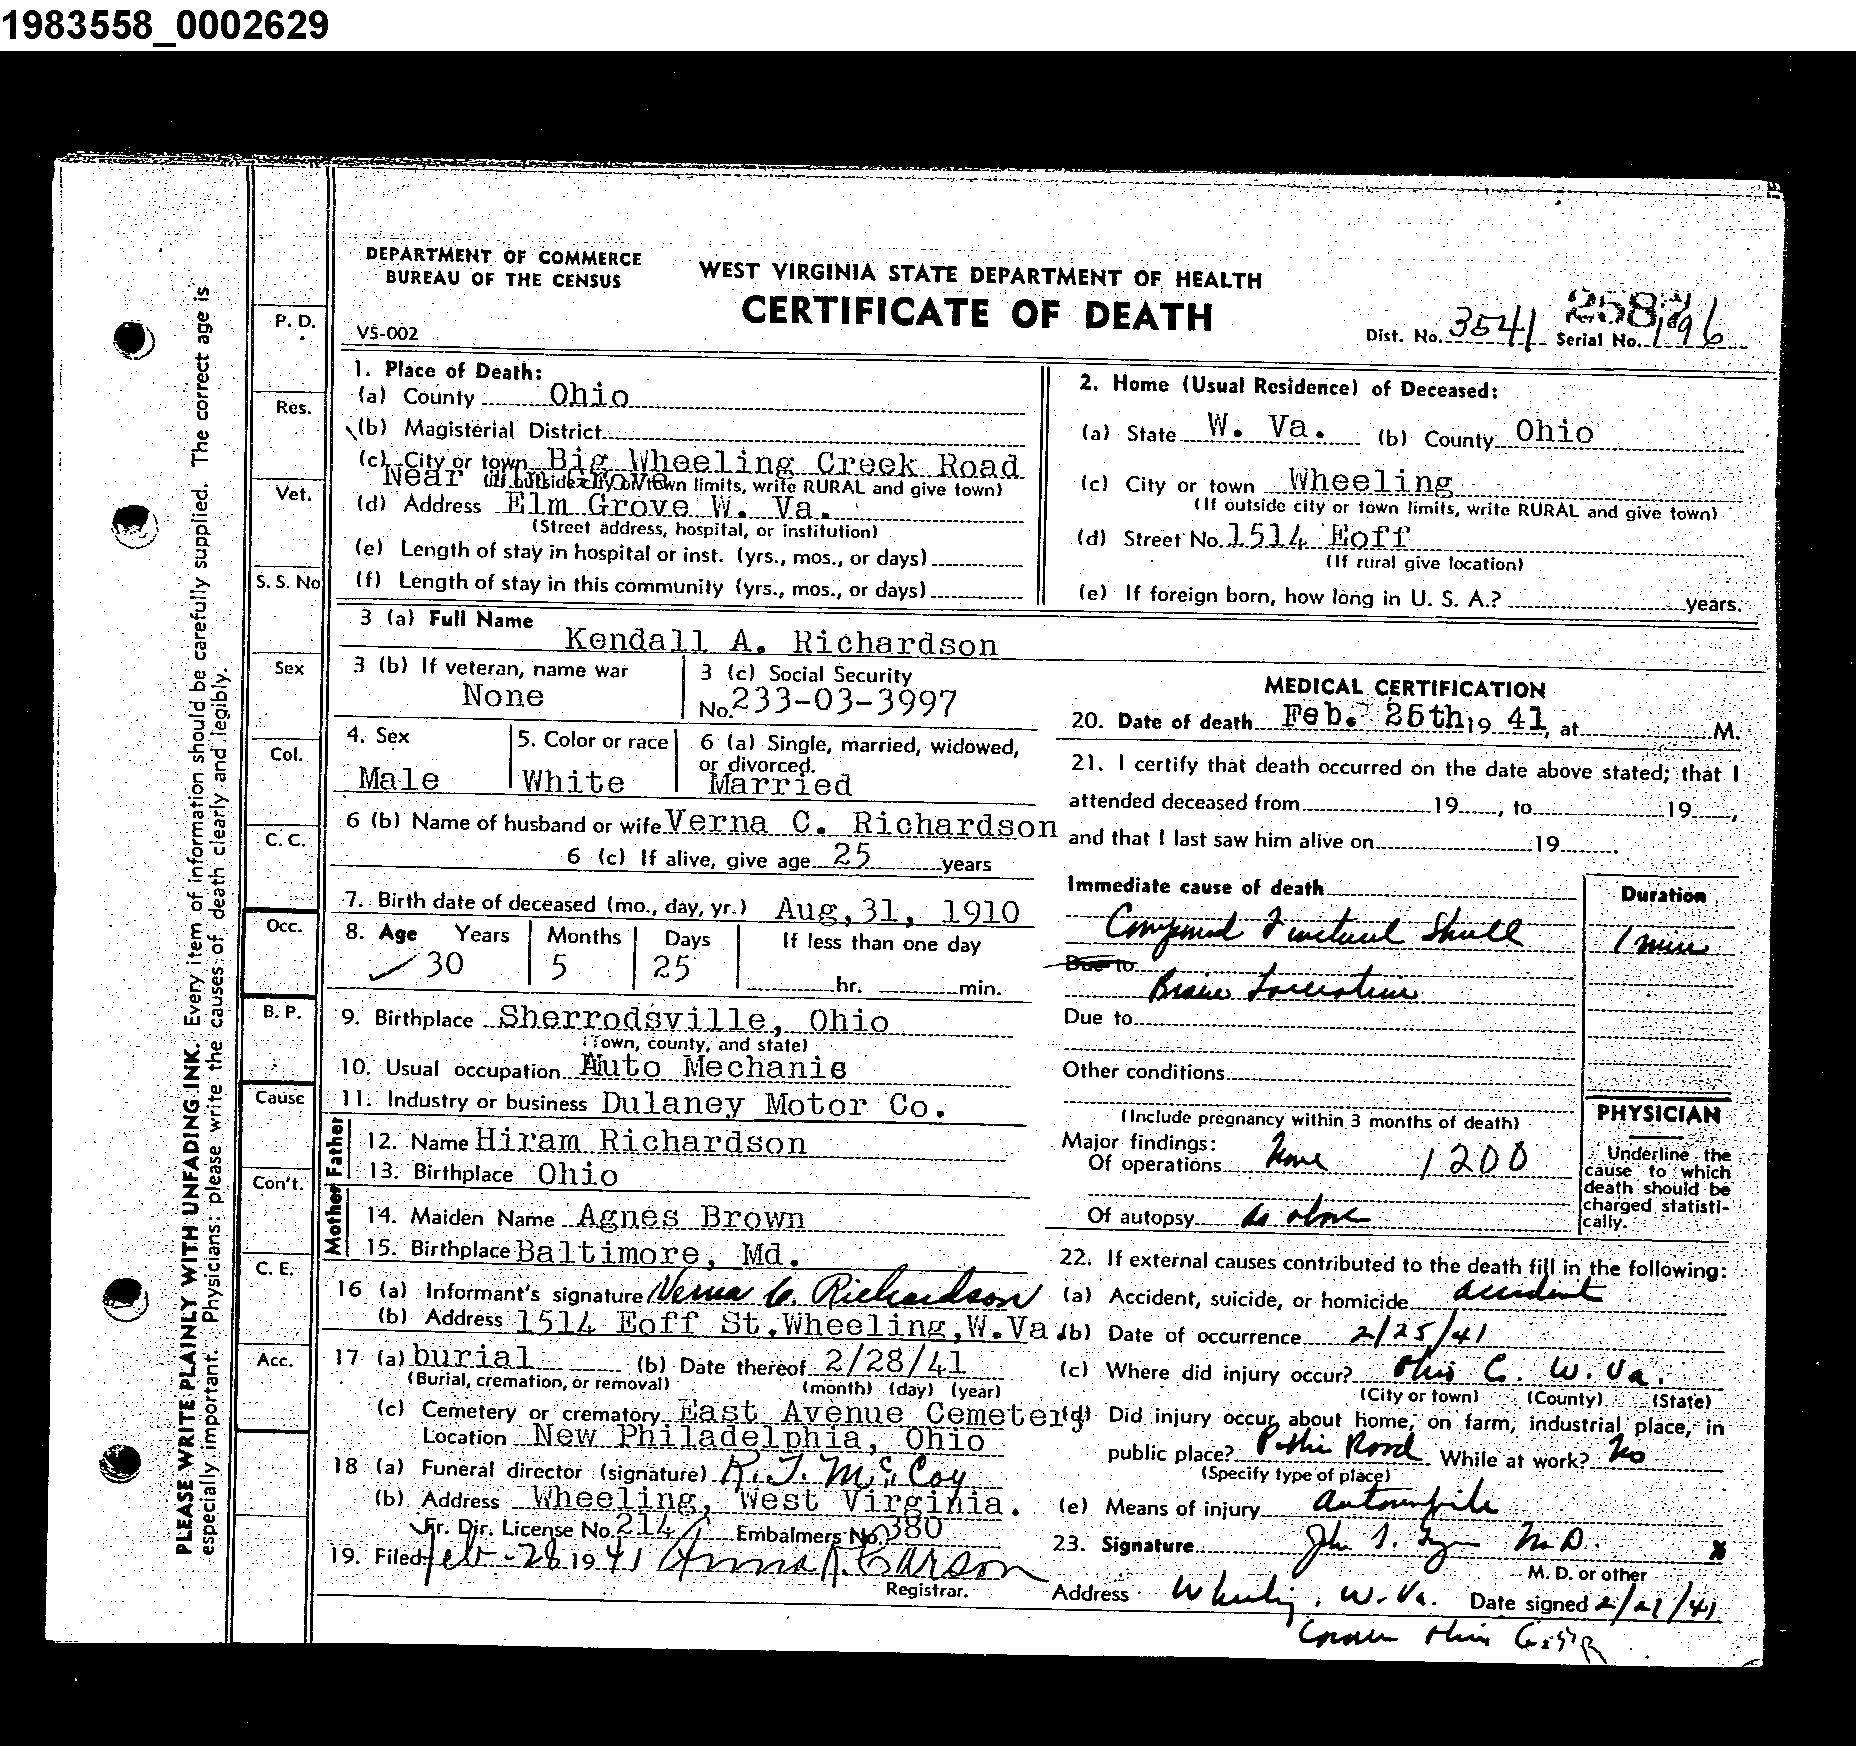 1983558_0002629
DEPARTMENT OF COMMERCE
BUREAU OF THE CENSUS
WEST VIRGINIA STATE DEPARTMENT OF HEALTH
CERTIFICATE OF DEATH
VS-002
Dist. No. 3541 Serial No. 196
1. Place of Death:
(a) County Ohio
(b) Magisterial District
(c) City or town Big Wheeling Creek Road
Near
(If outside city or town limits, write RURAL and give town)
(d) Address Elm Grove W. Va.
(Street address, hospital, or institution)
(e) Length of stay in hospital or inst. (yrs., mos., or days)
(f) Length of stay in this community (yrs., mos., or days)
2. Home (Usual Residence) of Deceased:
(a) State W. Va. (b) County Ohio
(c) City or town Wheeling
(If outside city or town limits, write RURAL and give town)
(d) Street No. 1514 Eoff
(If rural give location)
(e) If foreign born, how long in U. S. A.? years.
3 (a) Full Name
Kendall A. Richardson
3 (b) If veteran, name war
None
3 (c) Social Security
No. 233-03-3997
4. Sex
Male
5. Color or race
White
6 (a) Single, married, widowed,
or divorced.
Married
6 (b) Name of husband or wife Verna C. Richardson
6 (c) If alive, give age 25 years
7. Birth date of deceased (mo., day, yr.) Aug, 31, 1910
8. Age Years Months Days If less than one day
30 5 25 hr. min.
9. Birthplace Sherrodsville, Ohio
(Town, county, and state)
10. Usual occupation Auto Mechanic
11. Industry or business Dulaney Motor Co.
Father
12. Name Hiram Richardson
13. Birthplace Ohio
Mother
14. Maiden Name Agnes Brown
15. Birthplace Baltimore, Md.
16 (a) Informant's signature Verna C. Richardson
(b) Address 1514 Eoff St. Wheeling, W.Va
17 (a) burial (b) Date thereof 2/28/41
(Burial, cremation, or removal) (month) (day) (year)
(c) Cemetery or crematory East Avenue Cemetery
Location New Philadelphia, Ohio
18 (a) Funeral director (signature) R. J. McCoy
(b) Address Wheeling, West Virginia.
Fr. Dir. License No. 214 Embalmers No. 380
19. Filed Feb-28 1941 Anna R. Carson
Registrar.
MEDICAL CERTIFICATION
20. Date of death Feb. 25th 19 41, at M.
21. I certify that death occurred on the date above stated; that I
attended deceased from 19 , to 19 ,
and that I last saw him alive on 19 .
Immediate cause of death
Duration
Compound Fractured Skull 1 min
Due to
Brain Laceration
Due to
Other conditions
(Include pregnancy within 3 months of death)
Major findings:
Of operations None 1200
Of autopsy as above
PHYSICIAN
Underline the
cause to which
death should be
charged statisti-
cally.
22. If external causes contributed to the death fill in the following:
(a) Accident, suicide, or homicide accident
(b) Date of occurrence 2/25/41
(c) Where did injury occur? Ohio Co. W. Va.
(City or town) (County) (State)
(d) Did injury occur about home, on farm, industrial place, in
public place? Public Road While at work? No
(Specify type of place)
(e) Means of injury Automobile
23. Signature M.D.
M. D. or other
Address Wheeling, W. Va. Date signed
Coroner Ohio Co.
P. D.
Res.
Vet.
S. S. No
Sex
Col.
C. C.
Occ.
B. P.
Cause
Con't.
C. E.
Acc.
PLEASE WRITE PLAINLY WITH UNFADING INK. Every item of information should be carefully supplied. The correct age is
especially important. Physicians: please write the causes of death clearly and legibly.